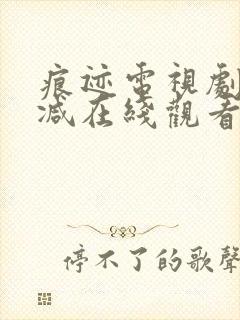 痕迹電視劇
减在綫觀看
停不了的歌聲